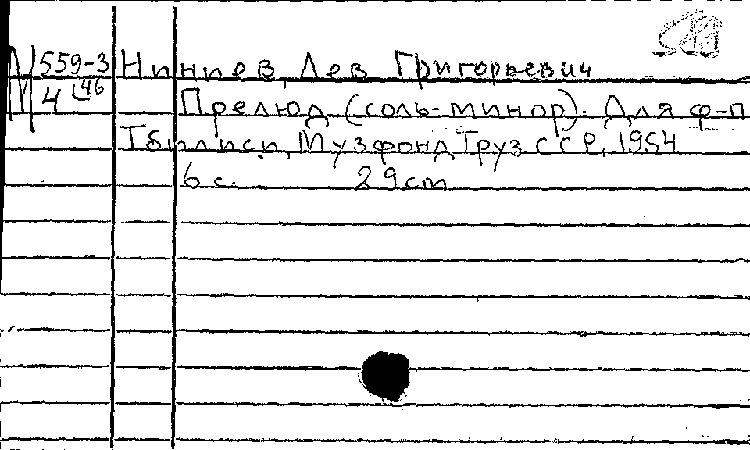 М 559-3 Ниниев, Лев Григорьевич
4 46 Прелюд (соль-минор). Для ф-п
Тбилиси, Музфонд Груз ССР, 1954
6 с. 29 cm